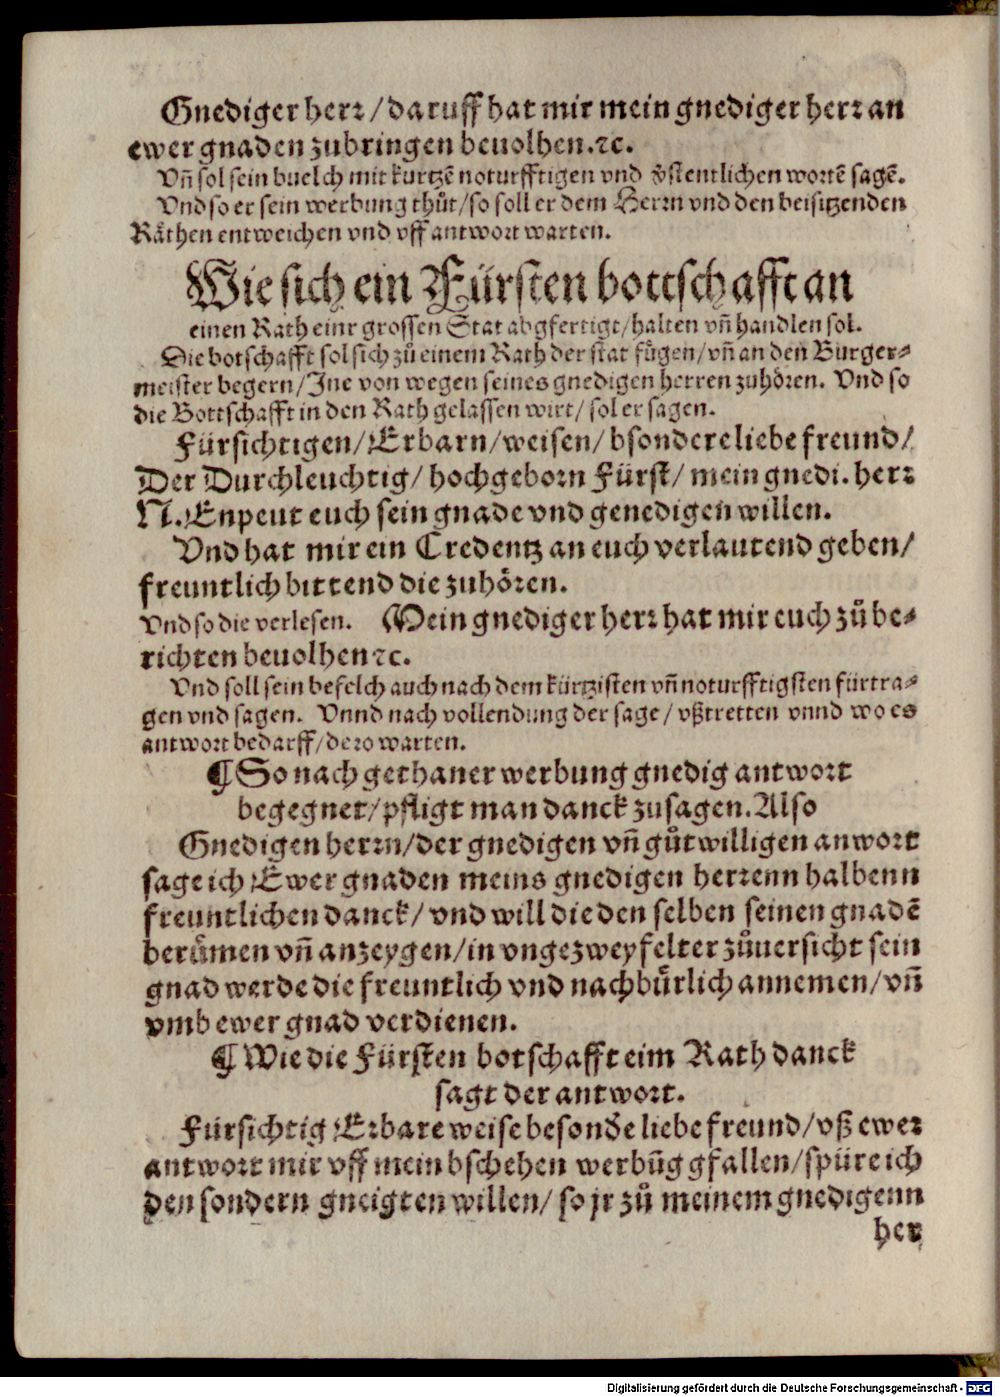 Gnediger herr/daruff hat mir mein gnediger herr an
ewer gnaden zubringen beuolhen.ꝛc.
Vñ sol sein buelch mit kurtzē noturfftigen vnd ostentlichen wortē sagē.
Vnd so er sein werbung thůt/so soll er dem Herrn vnd den beisitzenden
Räthen entweichen vnd vff antwort warten.
Wie sich ein Fürsten bottschafft an
einen Rath einr grossen Stat abgfertigt/halten vñ handlen sol.
Die botschafft sol sich zů einem Rath der stat fügen/vñ an den Burger⸗
meister begern/Jne von wegen seines gnedigen herren zuhören. Vnd so
die Bottschafft in den Rath gelassen wirt/sol er sagen.
Fürsichtigen/Erbarn/weisen/bsondere liebe freund/
Der Durchleuchtig/hochgeborn Fürst/mein gnedi. herr
N. Enpeut euch sein gnade vnd genedigen willen.
Vnd hat mir ein Credentz an euch verlautend geben/
freuntlich bittend die zuhören.
Vnd so die verlesen. Mein gnediger herr hat mir euch zů be⸗
richten beuolhen ꝛc.
Vnd soll sein befelch auch nach dem kürtzisten vñ noturfftigsten fürtra⸗
gen vnd sagen. Vnnd nach vollendung der sage/vßtretten vnnd wo es
antwort bedarff/dero warten.
¶ So nach gethaner werbung gnedig antwort
begegnet/pfligt man danck zusagen. Also
Gnedigen herrn/der gnedigen vñ gůtwilligen anwort
sage ich Ewer gnaden meins gnedigen herrenn halbenn
freuntlichen danck/vnd will die den selben seinen gnadē
berůmen vñ anzeygen/in vngezweyfelter zůuersicht sein
gnad werde die freuntlich vnd nachbůrlich annemen/vñ
vmb ewer gnad verdienen.
¶ Wie die Fürsten botschafft eim Rath danck
sagt der antwort.
Fürsichtig Erbare weise besonde liebe freund/vß ewer
antwort mir vff mein bschehen werbūg gfallen/spüre ich
den sondern gneigten willen/so jr zů meinem gnedigenn
her
Digitalisierung gefördert durch die Deutsche Forschungsgemeinschaft - DFG